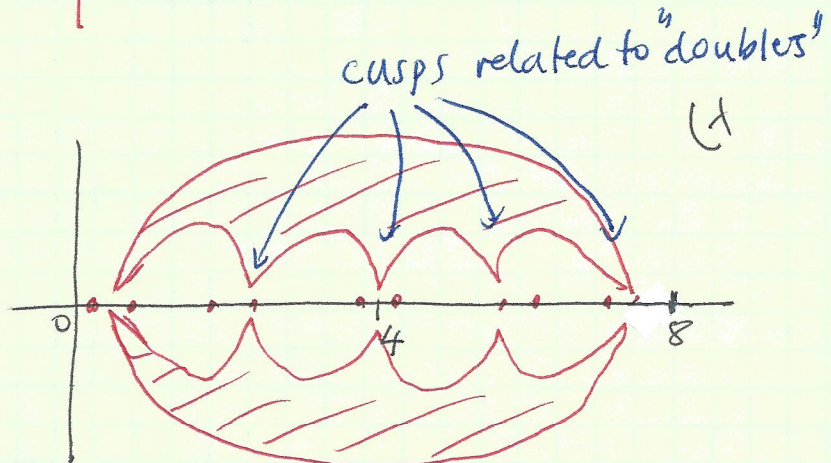 cusps related to "doubles"
(+
0 4 8